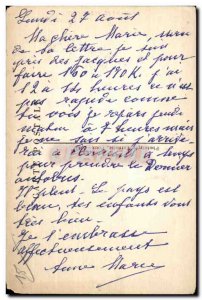 Lundi 27 août
Ma chère Marie,
de ta lettre je suis
pris des Jacques et pour
faire 160 à 190 K. j'ai
12 à 14 heures ce n'est
pas rapide comme
tu vois je repars
à 7 heures mais
je ne sais si
à temps
pour prendre le dernier
autobus.
Il pleut. Le pays est
beau, les enfants vont
très bien.
Je t'embrasse
affectueusement
Anne Marie